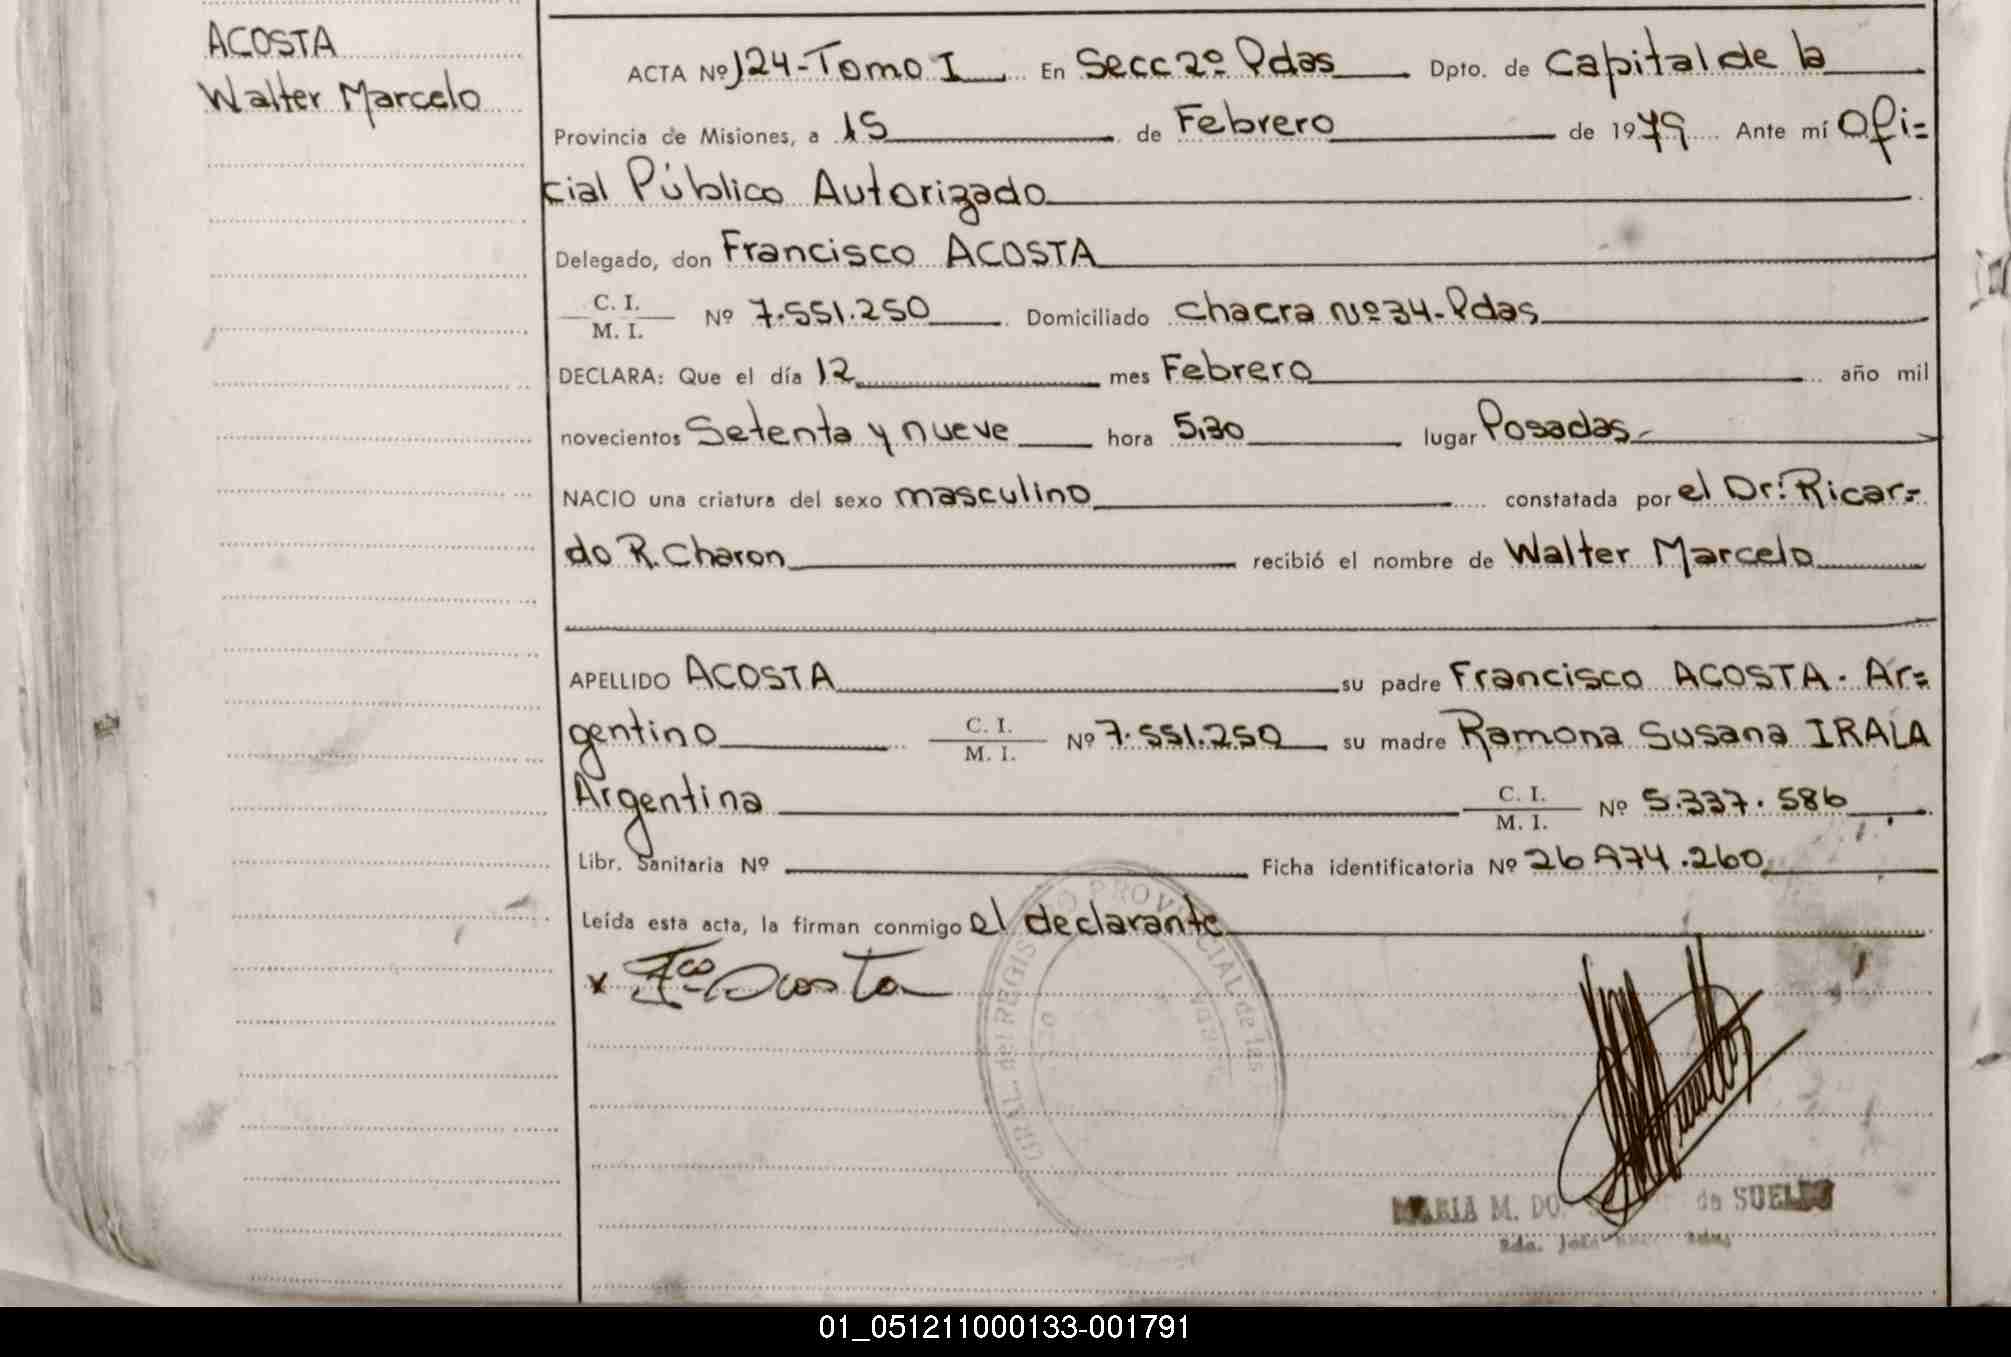 ACOSTA
Walter Marcelo
ACTA Nº 124-Tomo I En Secc 2º Pdas Dpto. de Capital de la
Provincia de Misiones, a 15 de Febrero de 1979 Ante mí Ofi=
cial Público Autorizado
Delegado, don Francisco ACOSTA
C. I.
M. I. Nº 7.551.250 Domiciliado Chacra Nº 34-Pdas
DECLARA: Que el día 12 mes Febrero año mil
novecientos Setenta y nueve hora 5,30 lugar Posadas.-
NACIO una criatura del sexo masculino constatada por el Dr: Ricar=
do R. Charon recibió el nombre de Walter Marcelo
APELLIDO ACOSTA su padre Francisco ACOSTA. Ar=
gentino C. I. M. I. Nº 7.551.250 su madre Ramona Susana IRALA
Argentina C. I. M. I. Nº 5.337.586
Libr. Sanitaria Nº Ficha identificatoria Nº 26.974.260
Leída esta acta, la firman conmigo el declarante
x Fco Acosta
GRAL. del REGISTRO PROVINCIAL de las
MARIA M. DO de SUELDO
01_051211000133-001791